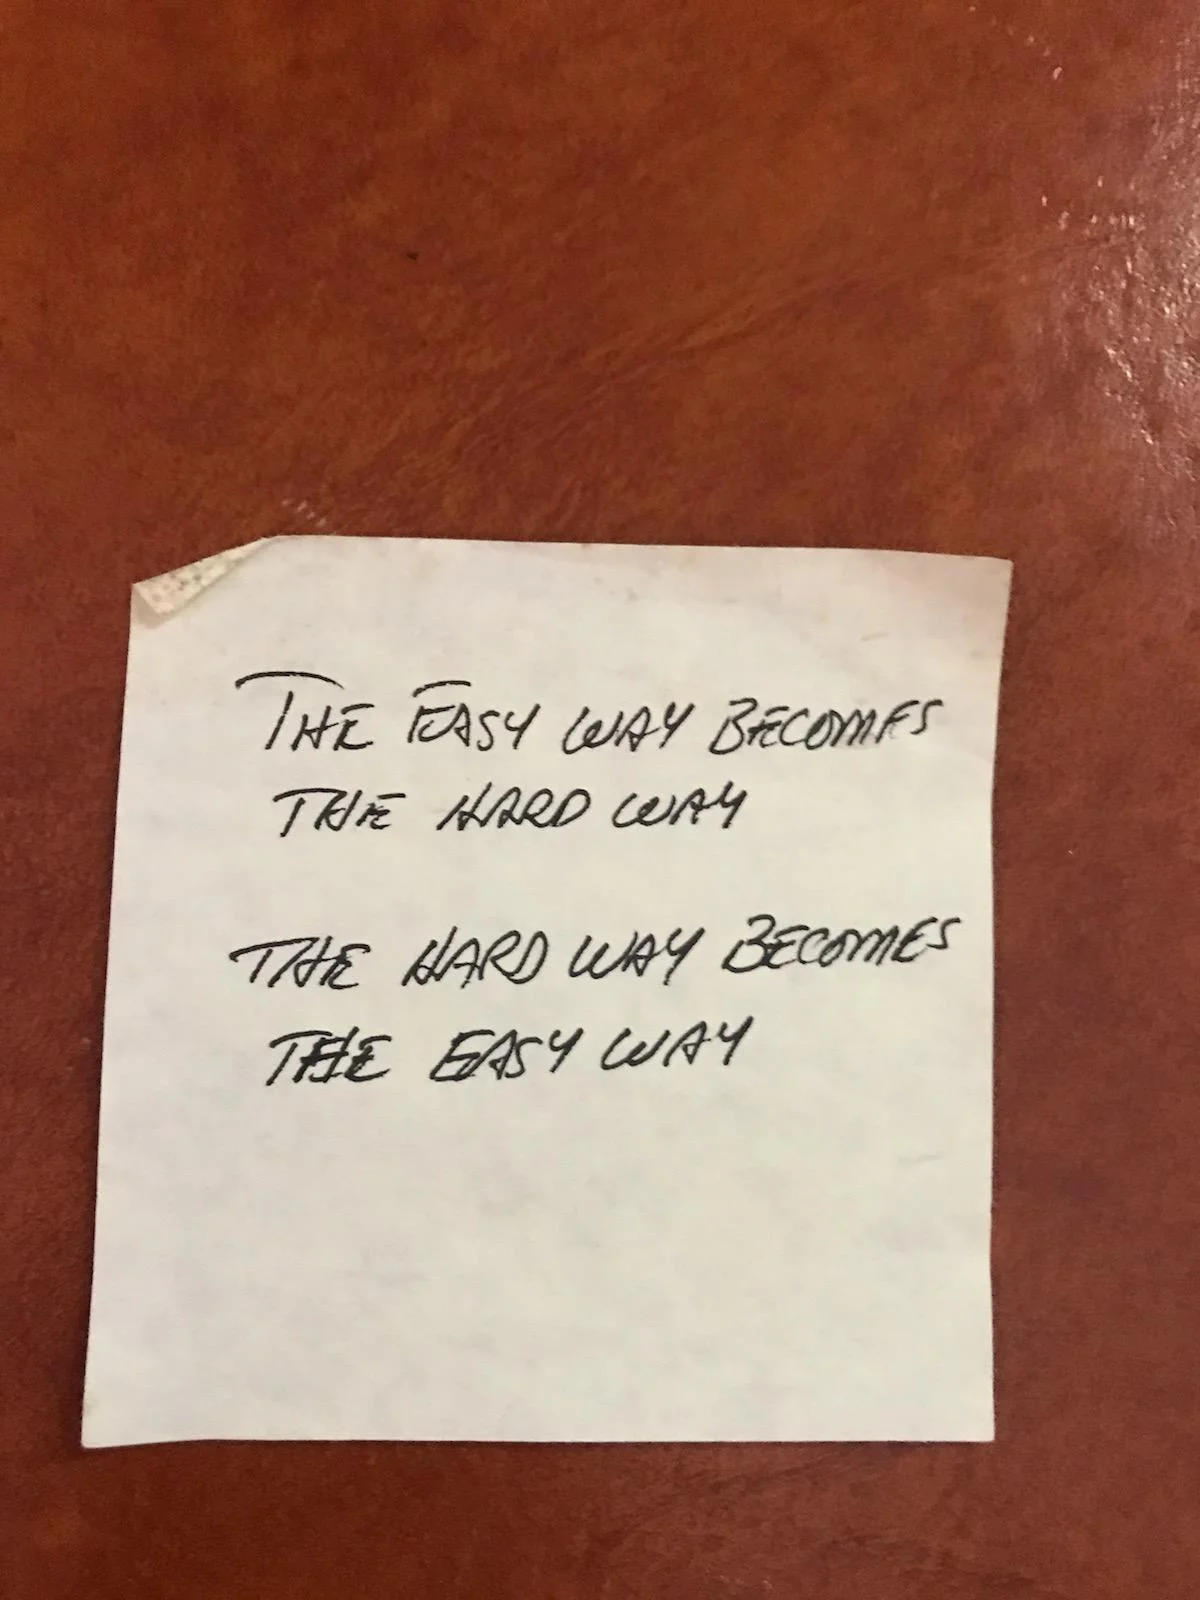 THE EASY WAY BECOMES
THE HARD WAY
THE HARD WAY BECOMES
THE EASY WAY